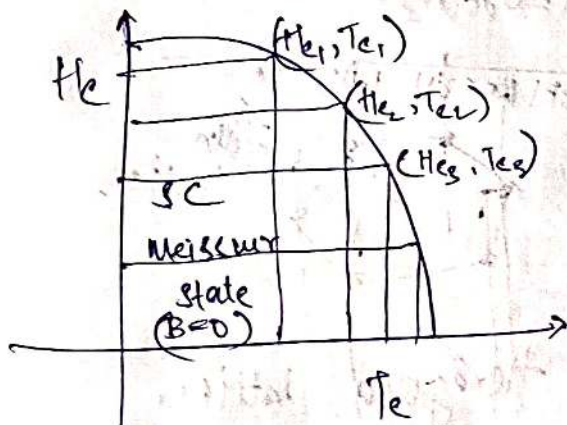 (Hc1, Tc1)
Hc
(Hc2, Tc2)
(Hc3, Tc3)
SC
Meissnur
state
(B=0)
Tc